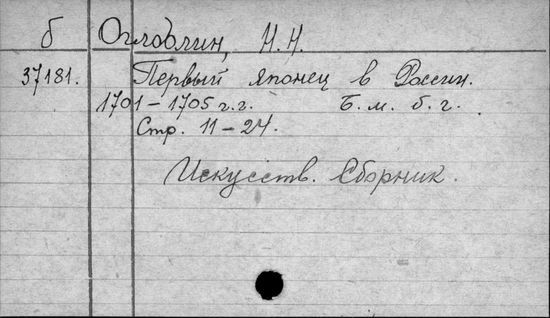 б Оглоблин, Н.Н.
37181. Первый японец в России.
1701-1705 г.г. Б. м. б. г.
Стр. 11-24.
Искусств. Сборник.